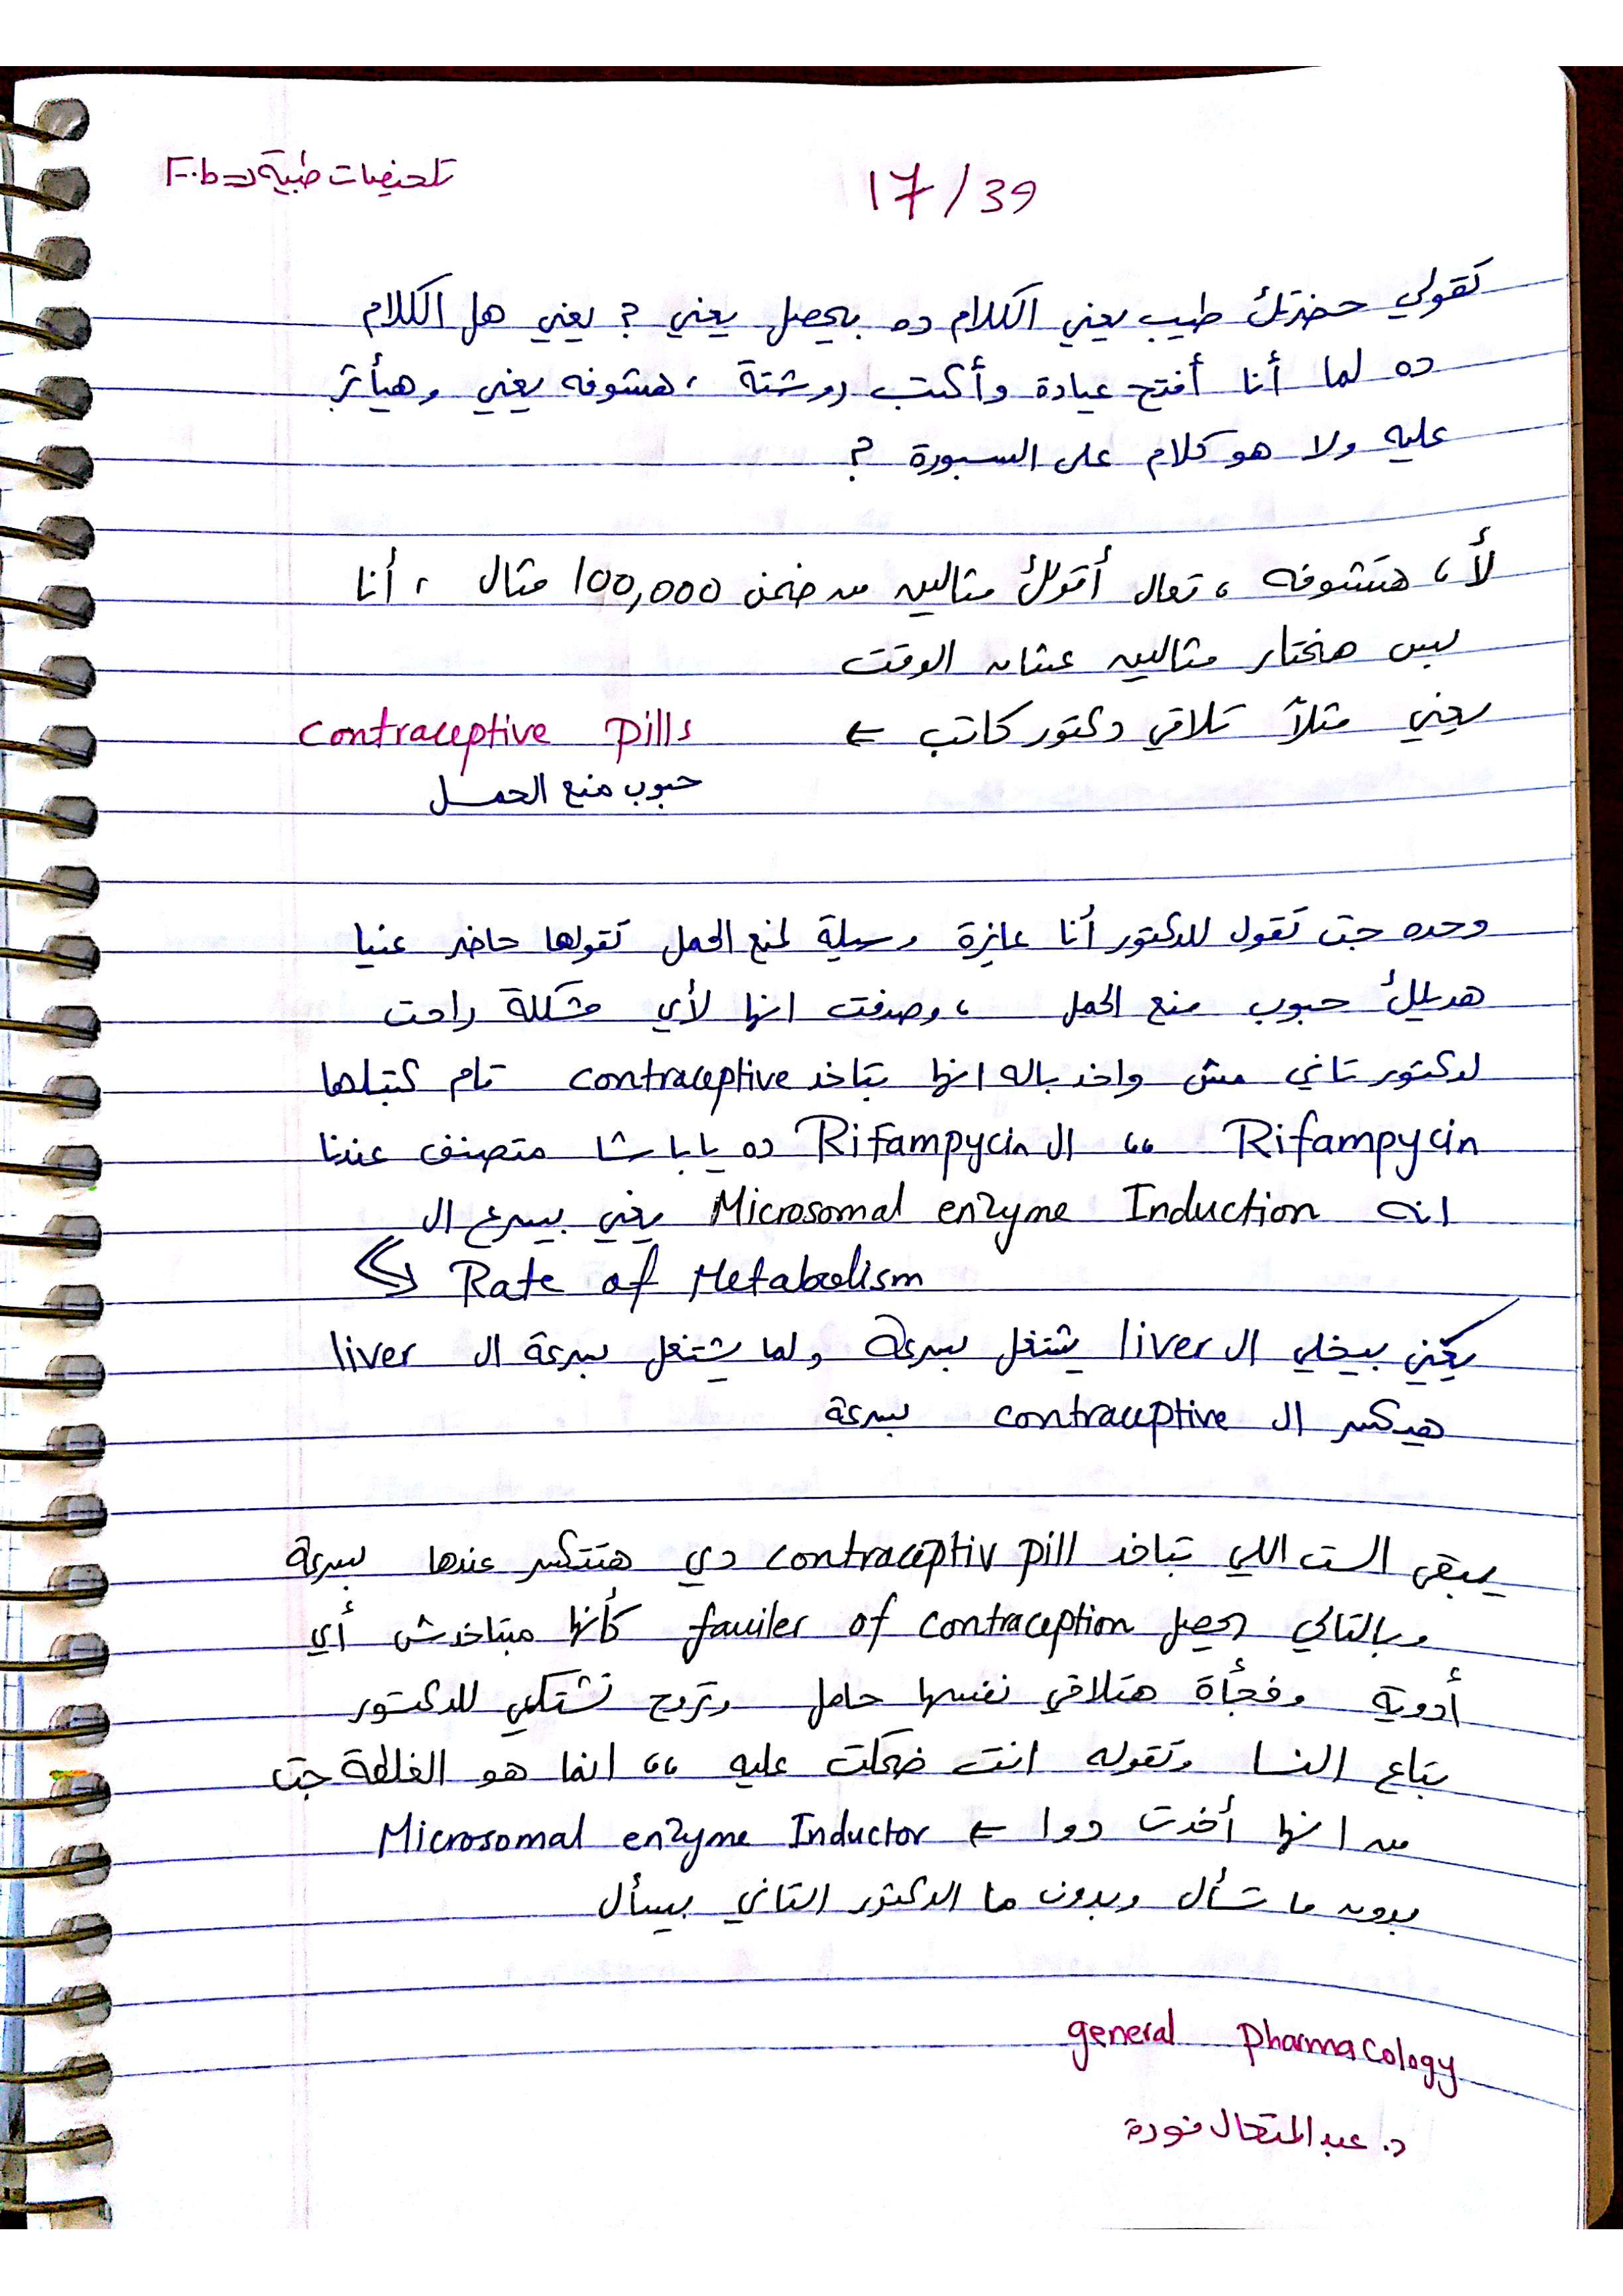 تلخيصات طبية => F.b
17/39
تقولي حضرتك طيب يعني الكلام ده بيحصل يعني ? يعني هل الكلام
ده لما أنا أفتح عيادة وأكتب روشتة ، هشوفه يعني وهيأثر
عليه ولا هو كلام على السبورة ?
لأ ، هتشوفه ، تعال أقولك مثالين من ضمن 100,000 مثال ، أنا
بس هختار مثالين عشان الوقت
يعني مثلاً تلاقي دكتور كاتب ← contraceptive pills
حبوب منع الحمل
وحده جت تقول للدكتور أنا عايزة وسيلة لمنع الحمل تقولها حاضر عنيا
هديلك حبوب منع الحمل ، وصدفت انها لأي مشكلة راحت
لدكتور تاني مش واخد باله انها بتاخد contraceptive تام كتبلها
Rifampycin ،، ال Rifampycin ده يا باشا متصنف عندنا
انه Microsomal enzyme Induction يعني بيسرع ال
Rate of Metabolism
يعني بيخلي ال liver يشتغل بسرعة ولما يشتغل بسرعة ال liver
هيكسر ال contraceptive بسرعة
يبقى الست اللي بتاخد contraceptiv pill دي هتتكسر عندها بسرعة
وبالتالي يحصل fauiler of contraception كأنها مبتاخدش أي
أدوية وفجأة هتلاقي نفسها حامل وتروح تشتكي للدكتور
بتاع النسا وتقوله انت ضحكت عليه ،، انما هو الغلطة جت
من انها أخدت دوا ← Microsomal enzyme Inductor
بدون ما تسأل وبدون ما الدكتور التاني بيسأل
general pharmacology
د. عبدالمتعال فودة